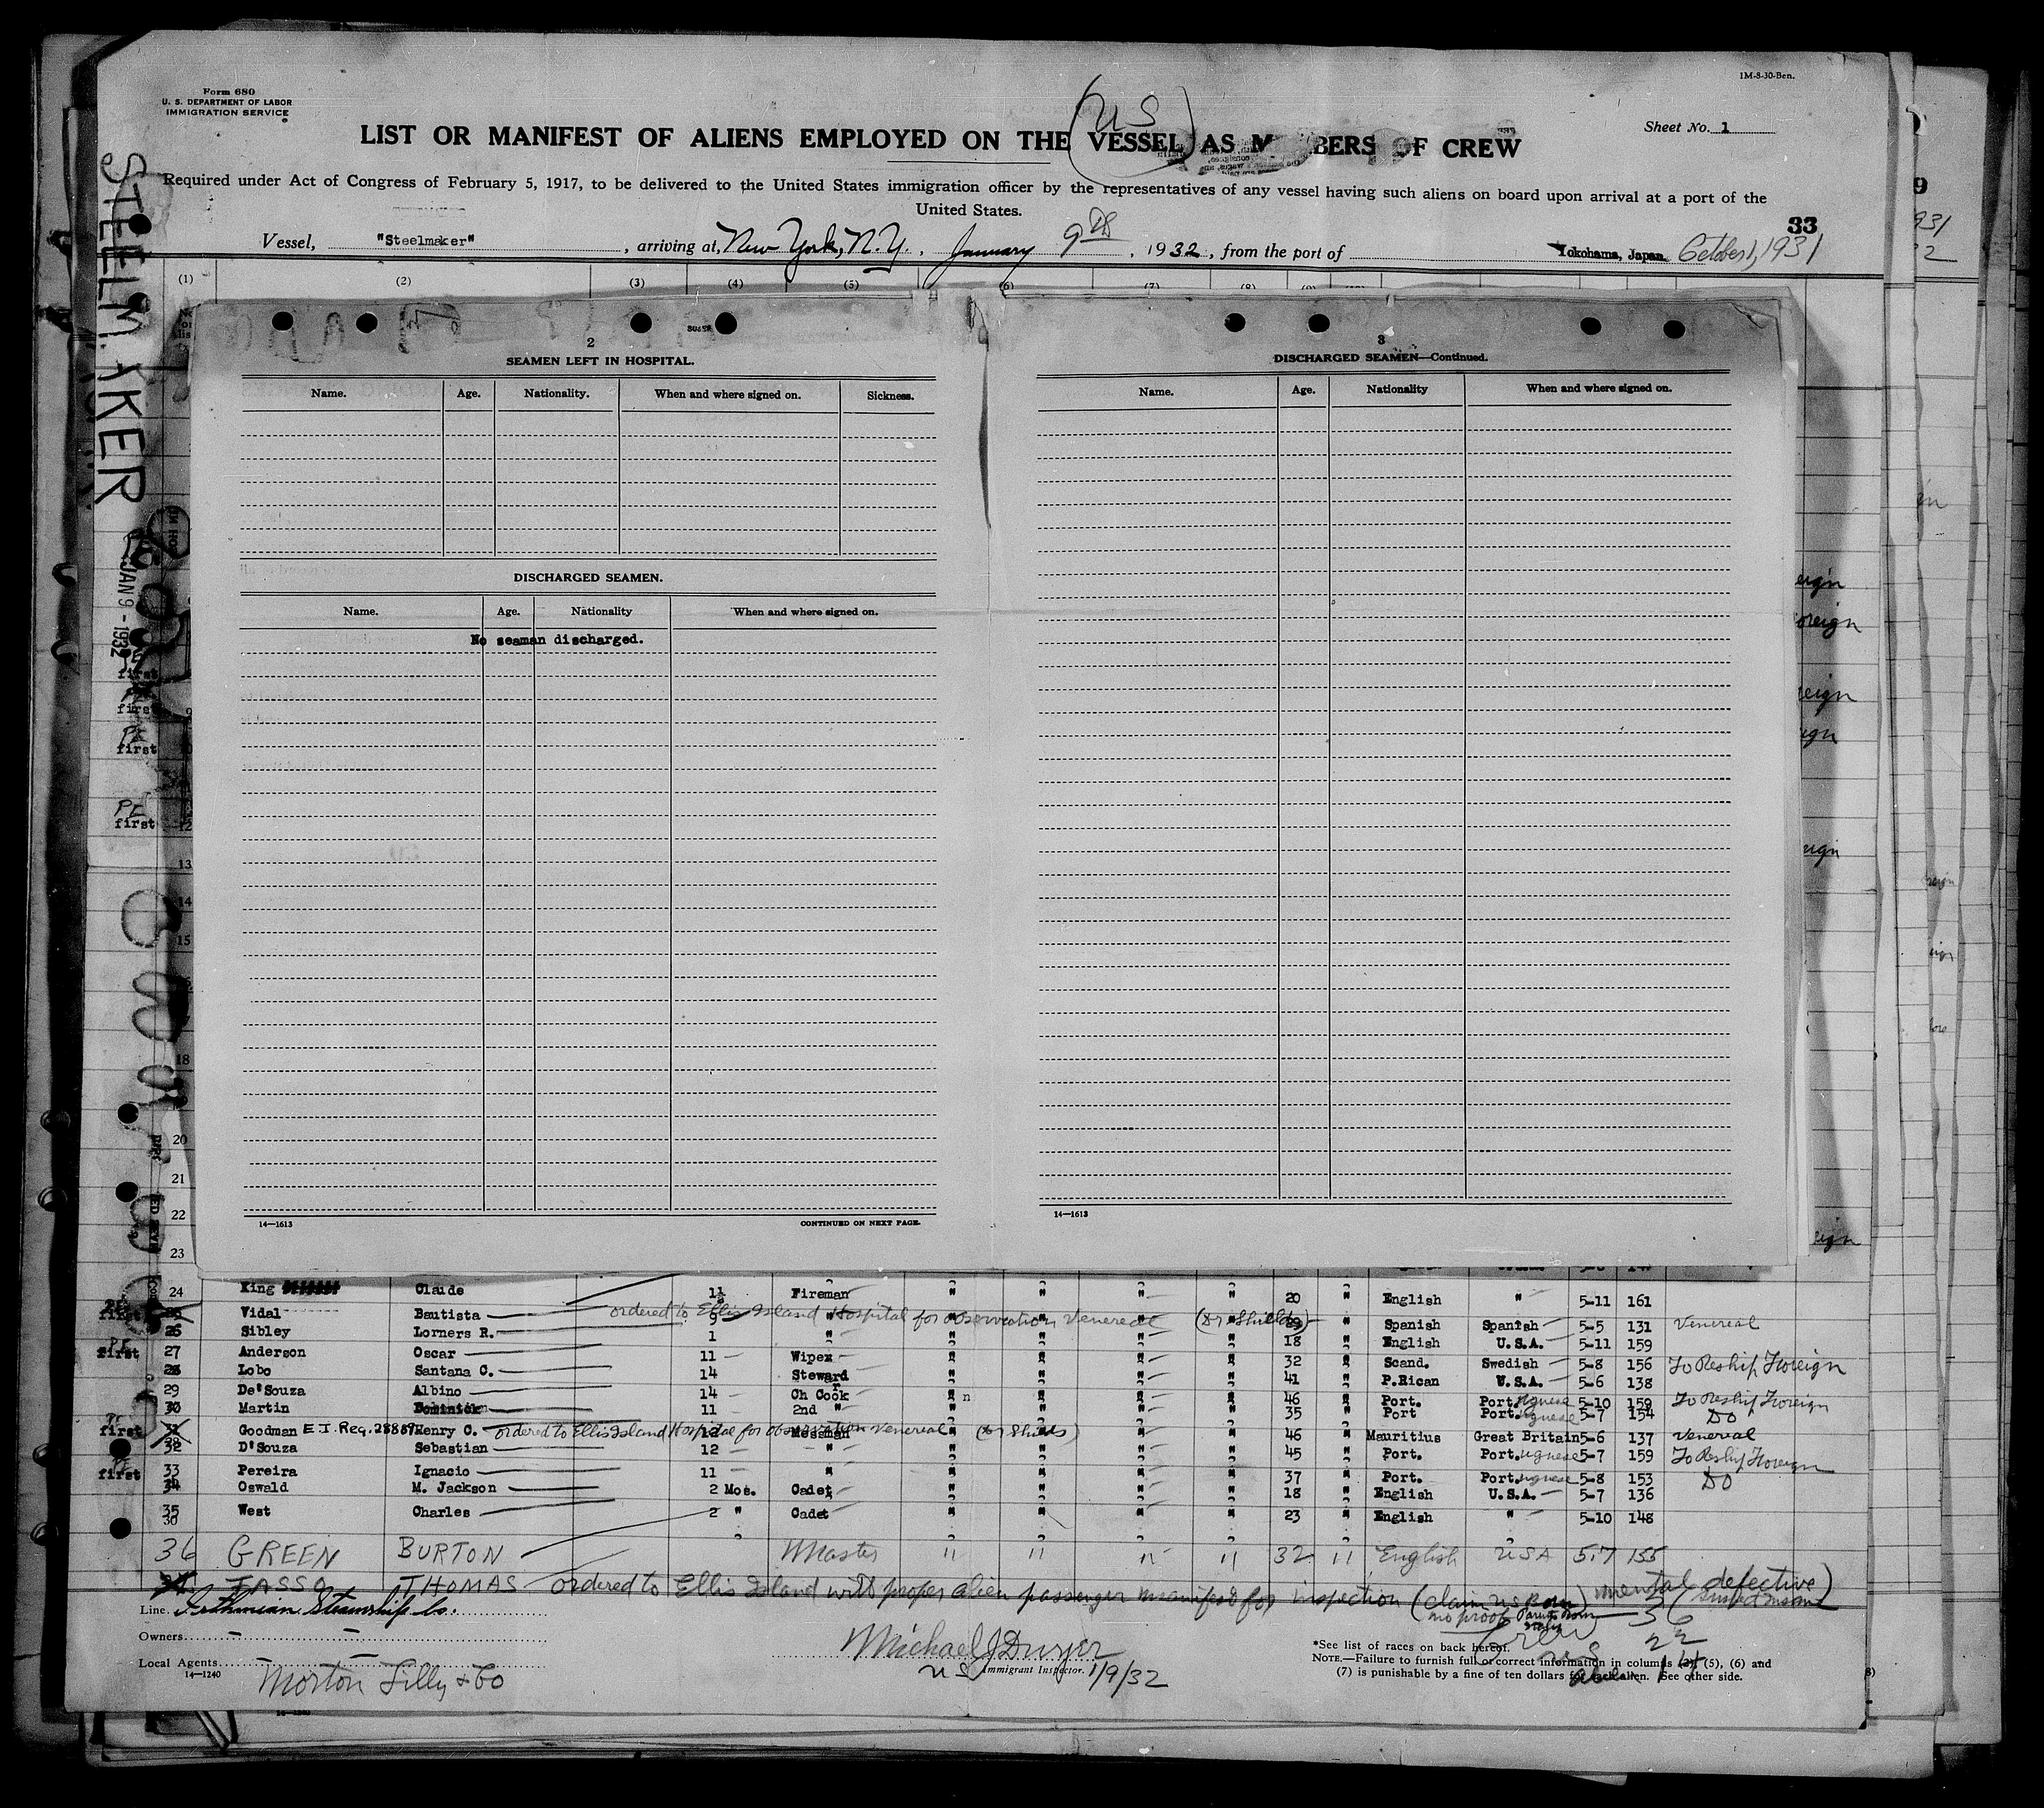 1M-8-30-Ben.
Form 680
U. S. DEPARTMENT OF LABOR
IMMIGRATION SERVICE
(US)
Sheet No. 1
LIST OR MANIFEST OF ALIENS EMPLOYED ON THE VESSEL AS MEMBERS OF CREW
Required under Act of Congress of February 5, 1917, to be delivered to the United States immigration officer by the representatives of any vessel having such aliens on board upon arrival at a port of the
United States.
33
Vessel, "Steelmaker", arriving at, New York, N.Y., January 9th, 1932, from the port of Yokohama, Japan October 1, 1931
STEELMAKER
JAN 9 - 1932
(1) (2) (3) (4) (5) (6) (7) (8)
2
SEAMEN LEFT IN HOSPITAL.
Name. Age. Nationality. When and where signed on. Sickness.
DISCHARGED SEAMEN.
Name. Age. Nationality When and where signed on.
No seaman discharged.
14—1613 CONTINUED ON NEXT PAGE.
3
DISCHARGED SEAMEN—Continued.
Name. Age. Nationality When and where signed on.
14—1613
first
first
PE
first
PE
first
12
13
14
15
18
20
21
22
23
24 King Claide Fireman " " " " 20 " English " 5-11 161
first Vidal Bautista 9 " ordered to Ellis Island Hospital for observation Venereal (Dr Shields) " Spanish Spanish 5-5 131 Venereal
26 Sibley Lorners R. 1 " " " " " 18 " English U.S.A. 5-11 159
first 27 Anderson Oscar 11 Wiper " " " " 32 " Scand. Swedish 5-8 156 To Reship Foreign
28 Lobo Santana C. 14 Steward " " " " 41 " P.Rican U.S.A. 5-6 138
29 De'Souza Albino 14 Ch Cook " " " " 46 " Port. Portuguese 5-10 159 To Reship Foreign
30 Martin Dominick 11 2nd " " " " " 35 " Port Portuguese 5-7 154 DO
first 31 Goodman E.I. Reg. 28867 Henry C. ordered to Ellis Island Hospital for observation Venereal (Dr Shields) 12 Messman 46 " Mauritius Great Britain 5-6 137 Venereal
32 D'Souza Sebastian 12 " " " " " 45 " Port. Portuguese 5-7 159 To Reship Foreign
first 33 Pereira Ignacio 11 " " " " " 37 " Port. Portuguese 5-8 153 DO
34 Oswald M. Jackson 2 Mos. Cadet " " " " 18 " English U.S.A. 5-7 136
35 West Charles 2 " Cadet " " " " 23 " English " 5-10 148
30
36 GREEN BURTON Master " " " " 32 " English USA 5-7 155
TASSO THOMAS ordered to Ellis Island with proper alien passenger manifest for inspection (claim US Born no proof Parents Born Italy) mental defective)
Line Isthmian Steamship Co.
Owners
Local Agents
14—1240
Morton Lilly & Co
Michael J Dwyer
US Immigrant Inspector. 1/9/32
*See list of races on back hereof.
NOTE.—Failure to furnish full or correct information in columns (2), (5), (6) and
(7) is punishable by a fine of ten dollars for each alien. See other side.
Crew
US 22
alien 14